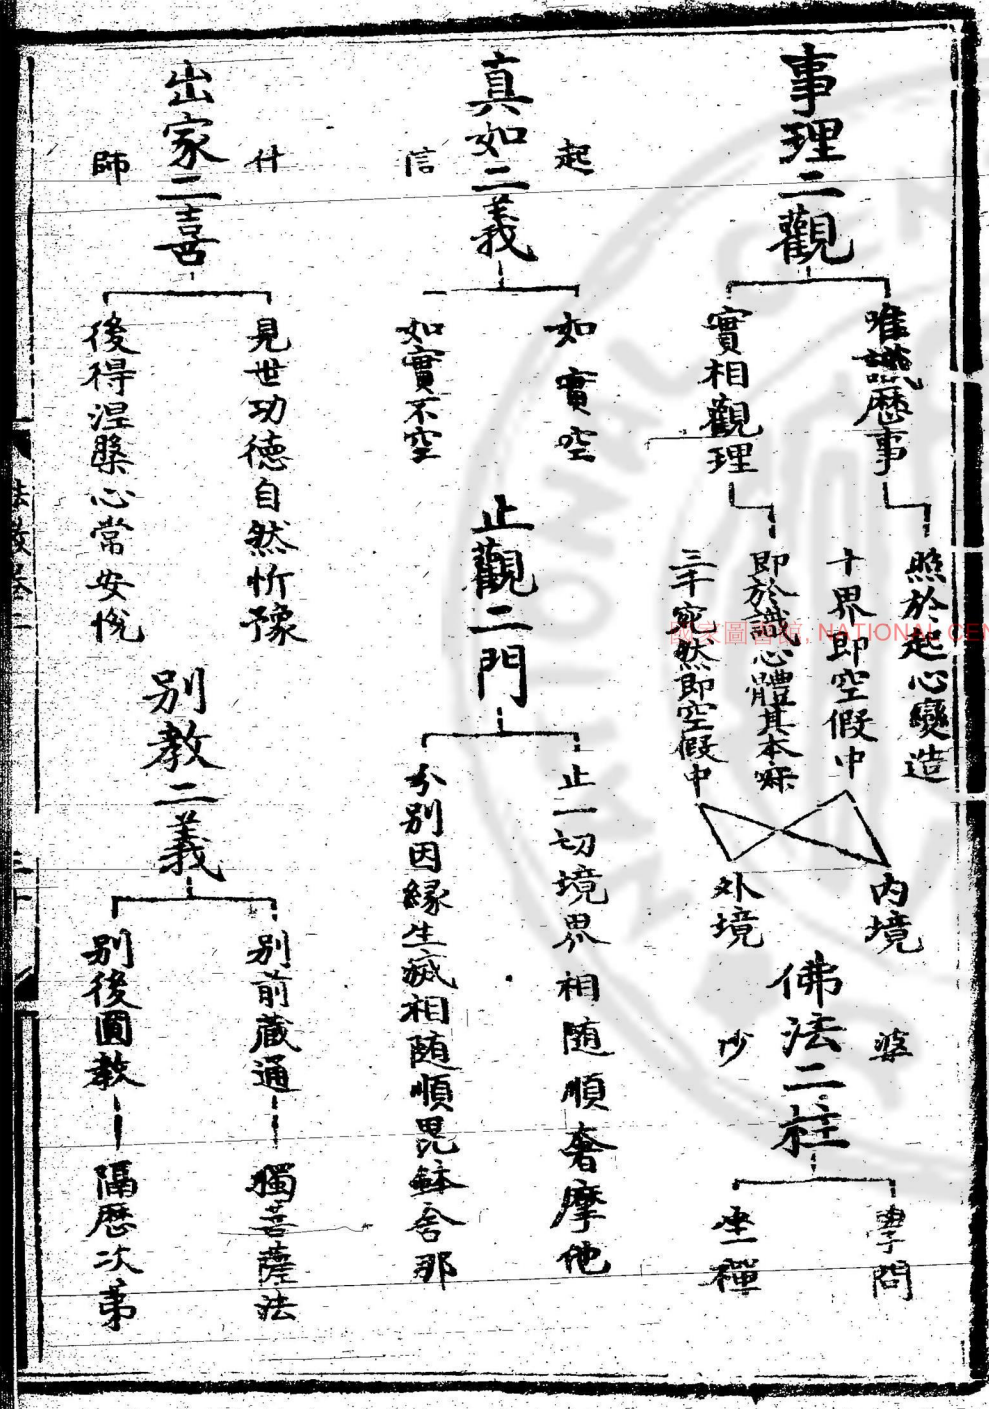 事理二觀
唯識歷事
照於起心變造
十界即空假中
內境
實相觀理
即於識心體其本寂
三千宛然即空假中
外境
佛法二柱
婆
沙
學問
坐禪
真如二義
起
信
如實空
如實不空
止觀二門
止一切境界相随順奢摩他
分別因緣生滅相随順毘鉢舍那
出家二喜
什
師
見世功德自然忻豫
後得涅槃心常安悅
别教二義
别前藏通
獨菩薩法
别後圓教
隔歷次第
國家圖書館, NATIONAL CEN